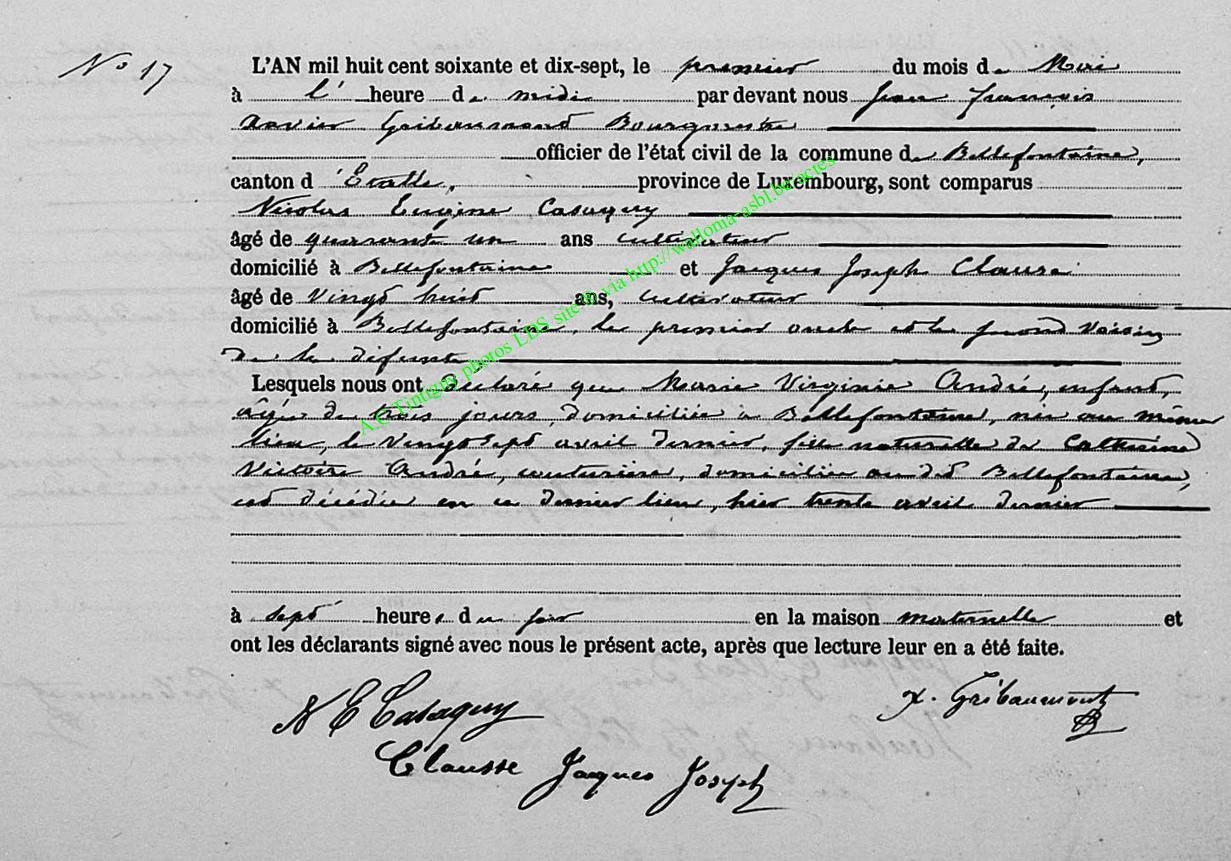 No 17
L'AN mil huit cent soixante et dix-sept, le premier du mois de Mai
à l' heure de midi par devant nous Jean François
Xavier Gribaumont Bourgmestre
officier de l'état civil de la commune de Bellefontaine,
canton d'Etalle, province de Luxembourg, sont comparus
Nicolas Eugène Casaquy
âgé de quarante un ans cultivateur
domicilié à Bellefontaine et Jacques Joseph Clausse
âgé de vingt huit ans, cultivateur
domicilié à Bellefontaine, le premier oncle et le second voisin
de la défunte
Lesquels nous ont déclaré que Marie Virginie André, enfant,
âgée de trois jours, domiciliée à Bellefontaine, née au même
lieu, le vingt sept avril dernier, fille naturelle de Catherine
Victoire André, couturière, domiciliée au dit Bellefontaine,
est décédée en ce dernier lieu, hier trente avril dernier
à sept heures du soir en la maison maternelle et
ont les déclarants signé avec nous le présent acte, après que lecture leur en a été faite.
N E Casaquy
X. Gribaumont
Clausse Jacques Joseph
A.C Tintigny photos LDS site © via http://walloma-asbl.be/actes